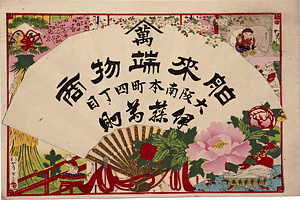 萬
舶來端物商
大阪南本町四丁目
伊藤萬則